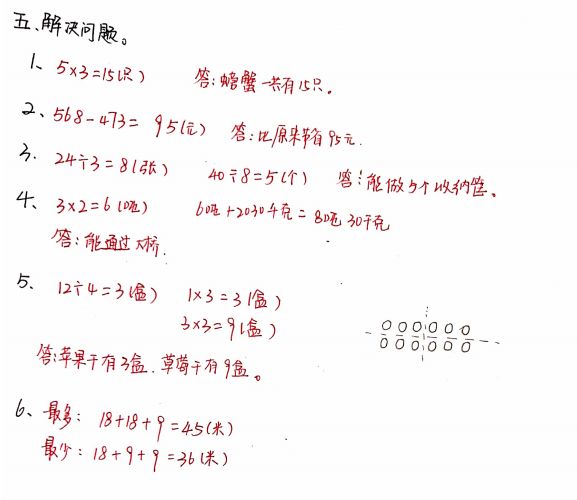 五、解决问题。
1、5×3=15(只) 答:螃蟹一共有15只。
2、568-473= 95(元) 答:比原来节省95元.
3、24÷3=8(张) 40÷8=5(个) 答:能做5个收纳筐。
4、3×2=6(吨) 6吨+2030千克=8吨30千克
答:能通过大桥.
5、12÷4=3(盒) 1×3=3(盒)
3×3=9(盒)
答:苹果干有3盒.草莓干有9盒。
6、最多:18+18+9=45(米)
最少:18+9+9=36(米)